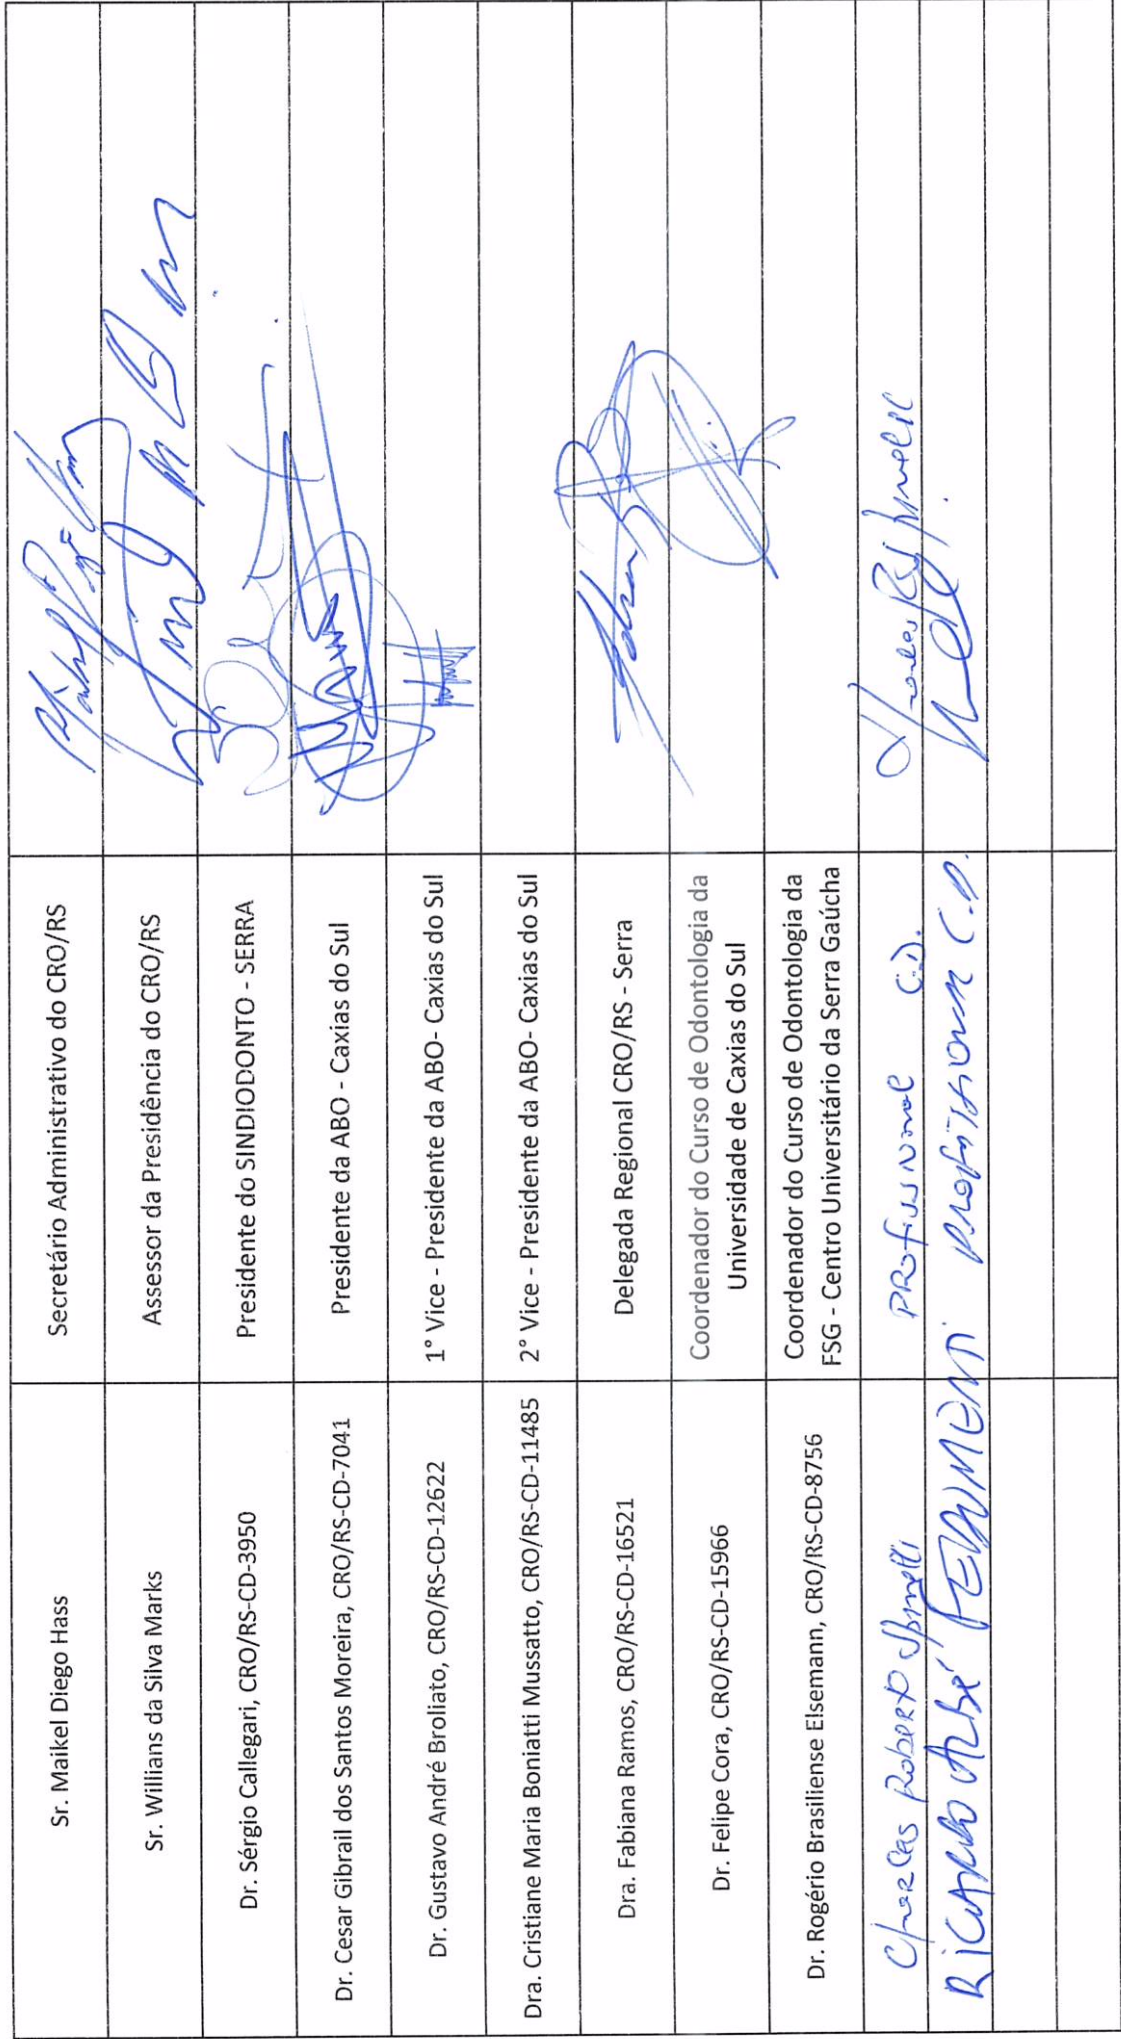 Sr. Maikel Diego Hass
Secretário Administrativo do CRO/RS
Sr. Willians da Silva Marks
Assessor da Presidência do CRO/RS
Dr. Sérgio Callegari, CRO/RS-CD-3950
Presidente do SINDIODONTO - SERRA
Dr. Cesar Gibrail dos Santos Moreira, CRO/RS-CD-7041
Presidente da ABO - Caxias do Sul
Dr. Gustavo André Broliato, CRO/RS-CD-12622
1° Vice - Presidente da ABO- Caxias do Sul
Dra. Cristiane Maria Boniatti Mussatto, CRO/RS-CD-11485
2° Vice - Presidente da ABO- Caxias do Sul
Dra. Fabiana Ramos, CRO/RS-CD-16521
Delegada Regional CRO/RS - Serra
Dr. Felipe Cora, CRO/RS-CD-15966
Coordenador do Curso de Odontologia da
Universidade de Caxias do Sul
Dr. Rogério Brasiliense Elsemann, CRO/RS-CD-8756
Coordenador do Curso de Odontologia da
FSG - Centro Universitário da Serra Gaúcha
Charles Roberto Spinelli
Profissional C.D.
Ricardo
Profissional C.D.